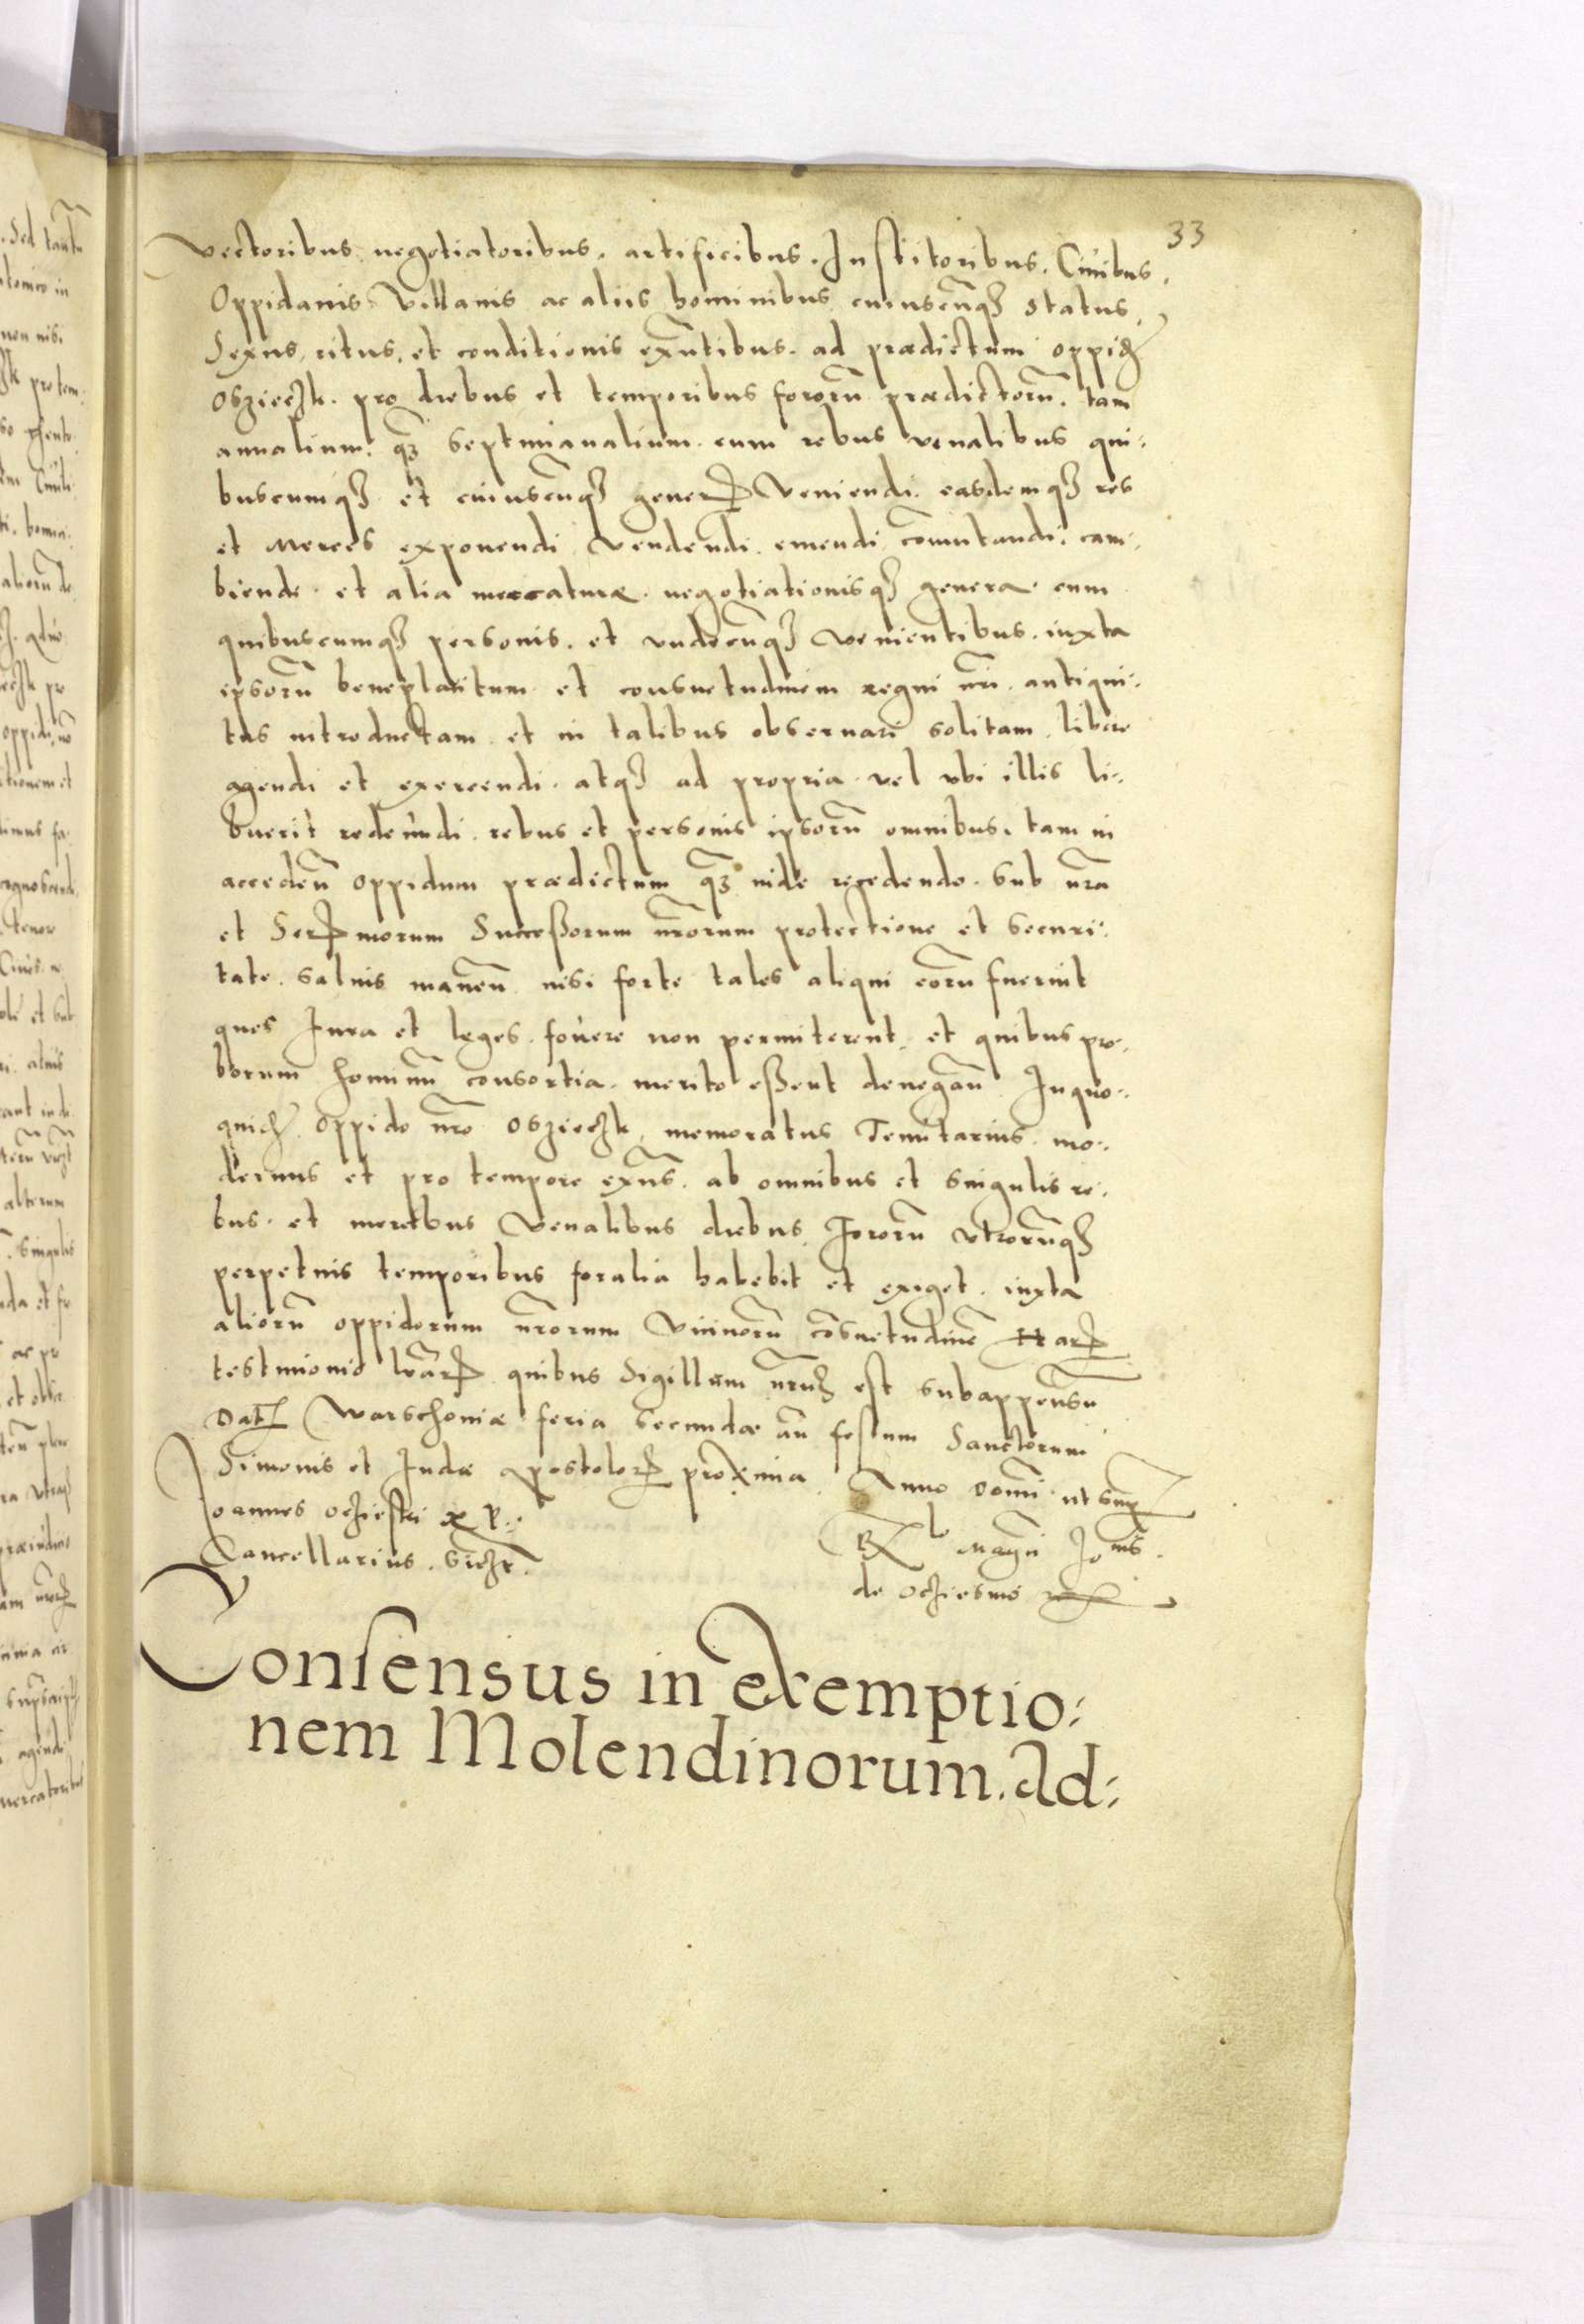 33
Vectoribus negotiatoribus. artificibus. Institoribus. Ciuibus.
Oppidanis Villanis ac aliis hominibus cuiuscūqȝ status,
Sexus, ritus, et conditionis exn̄tibus. ad prædictum oppid
Osziechk. pro diebus et temporibus fororū prædictorū. tam
annalium. qȝ septimanalium. cum rebus venalibus qui-
buscumqȝ et cuiuscūqȝ generꝭ Veniendi. easdemqȝ res
et merces exponendi Vendendi. emendi com̄utandi. cam-
biende. et alia mercaturæ. negotiationisqȝ genera cum
quibuscumqȝ personis. et vndecūqȝ venientibus. iuxta
ipsorū beneplacitum et consuetudinem regni nr̄i. antiqui-
tus introductam et in talibus obseruari solitam. libere
agendi et exercendi. atqȝ ad propria vel vbi illis li-
buerit redeundi. rebus et personis ipsorū omnibus. tam in
acceden̄ oppidum prædictum qȝ inde recedendo. sub nr̄a
et Serꝭmorum Successorum nr̄orum protectione et securi-
tate. saluis manen̄ nisi forte tales aliqui eorū fuerint
quos Iura et leges. fouere non permiterent. et quibus pro-
borum hominū consortia. merito essent denegan̄ In quo-
quid oppido nr̄o Osziechk memoratus Tenutarius. mo-
dernus et pro tempore exn̄s. ab omnibus et singulis re-
bus. et mercibus Venalibus diebus fororū vtrorūqȝ
perpetuis temporibus foralia habebit et exiget. iuxta
aliorū oppidorum nr̄orum Vicinorū cōsuetudinē Harꝭ
testimonio lr̄arꝭ quibus Sigillum nr̄uȝ est subappensū
Dat Warschouiæ feria secundæ an̄ festum Sanctorum
Simonis et Iudæ apostolorꝭ proxima. Anno Domi ut sup
Joannes ochieski R P.
Cancellarius. ssczt.
Rx lo Magn̄ Jonīs.
de ochiesino
Consensus in exemptio-
nem Molendinorum. ad-